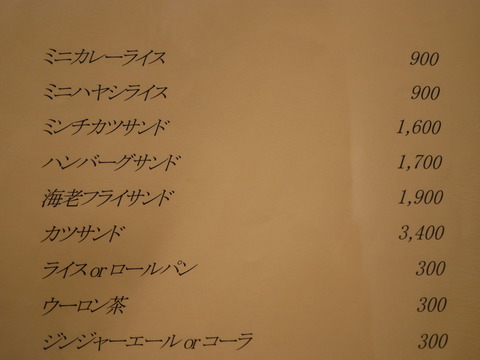 ミニカレーライス 900
ミニハヤシライス 900
ミンチカツサンド 1,600
ハンバーグサンド 1,700
海老フライサンド 1,900
カツサンド 3,400
ライス or ロールパン 300
ウーロン茶 300
ジンジャーエール or コーラ 300